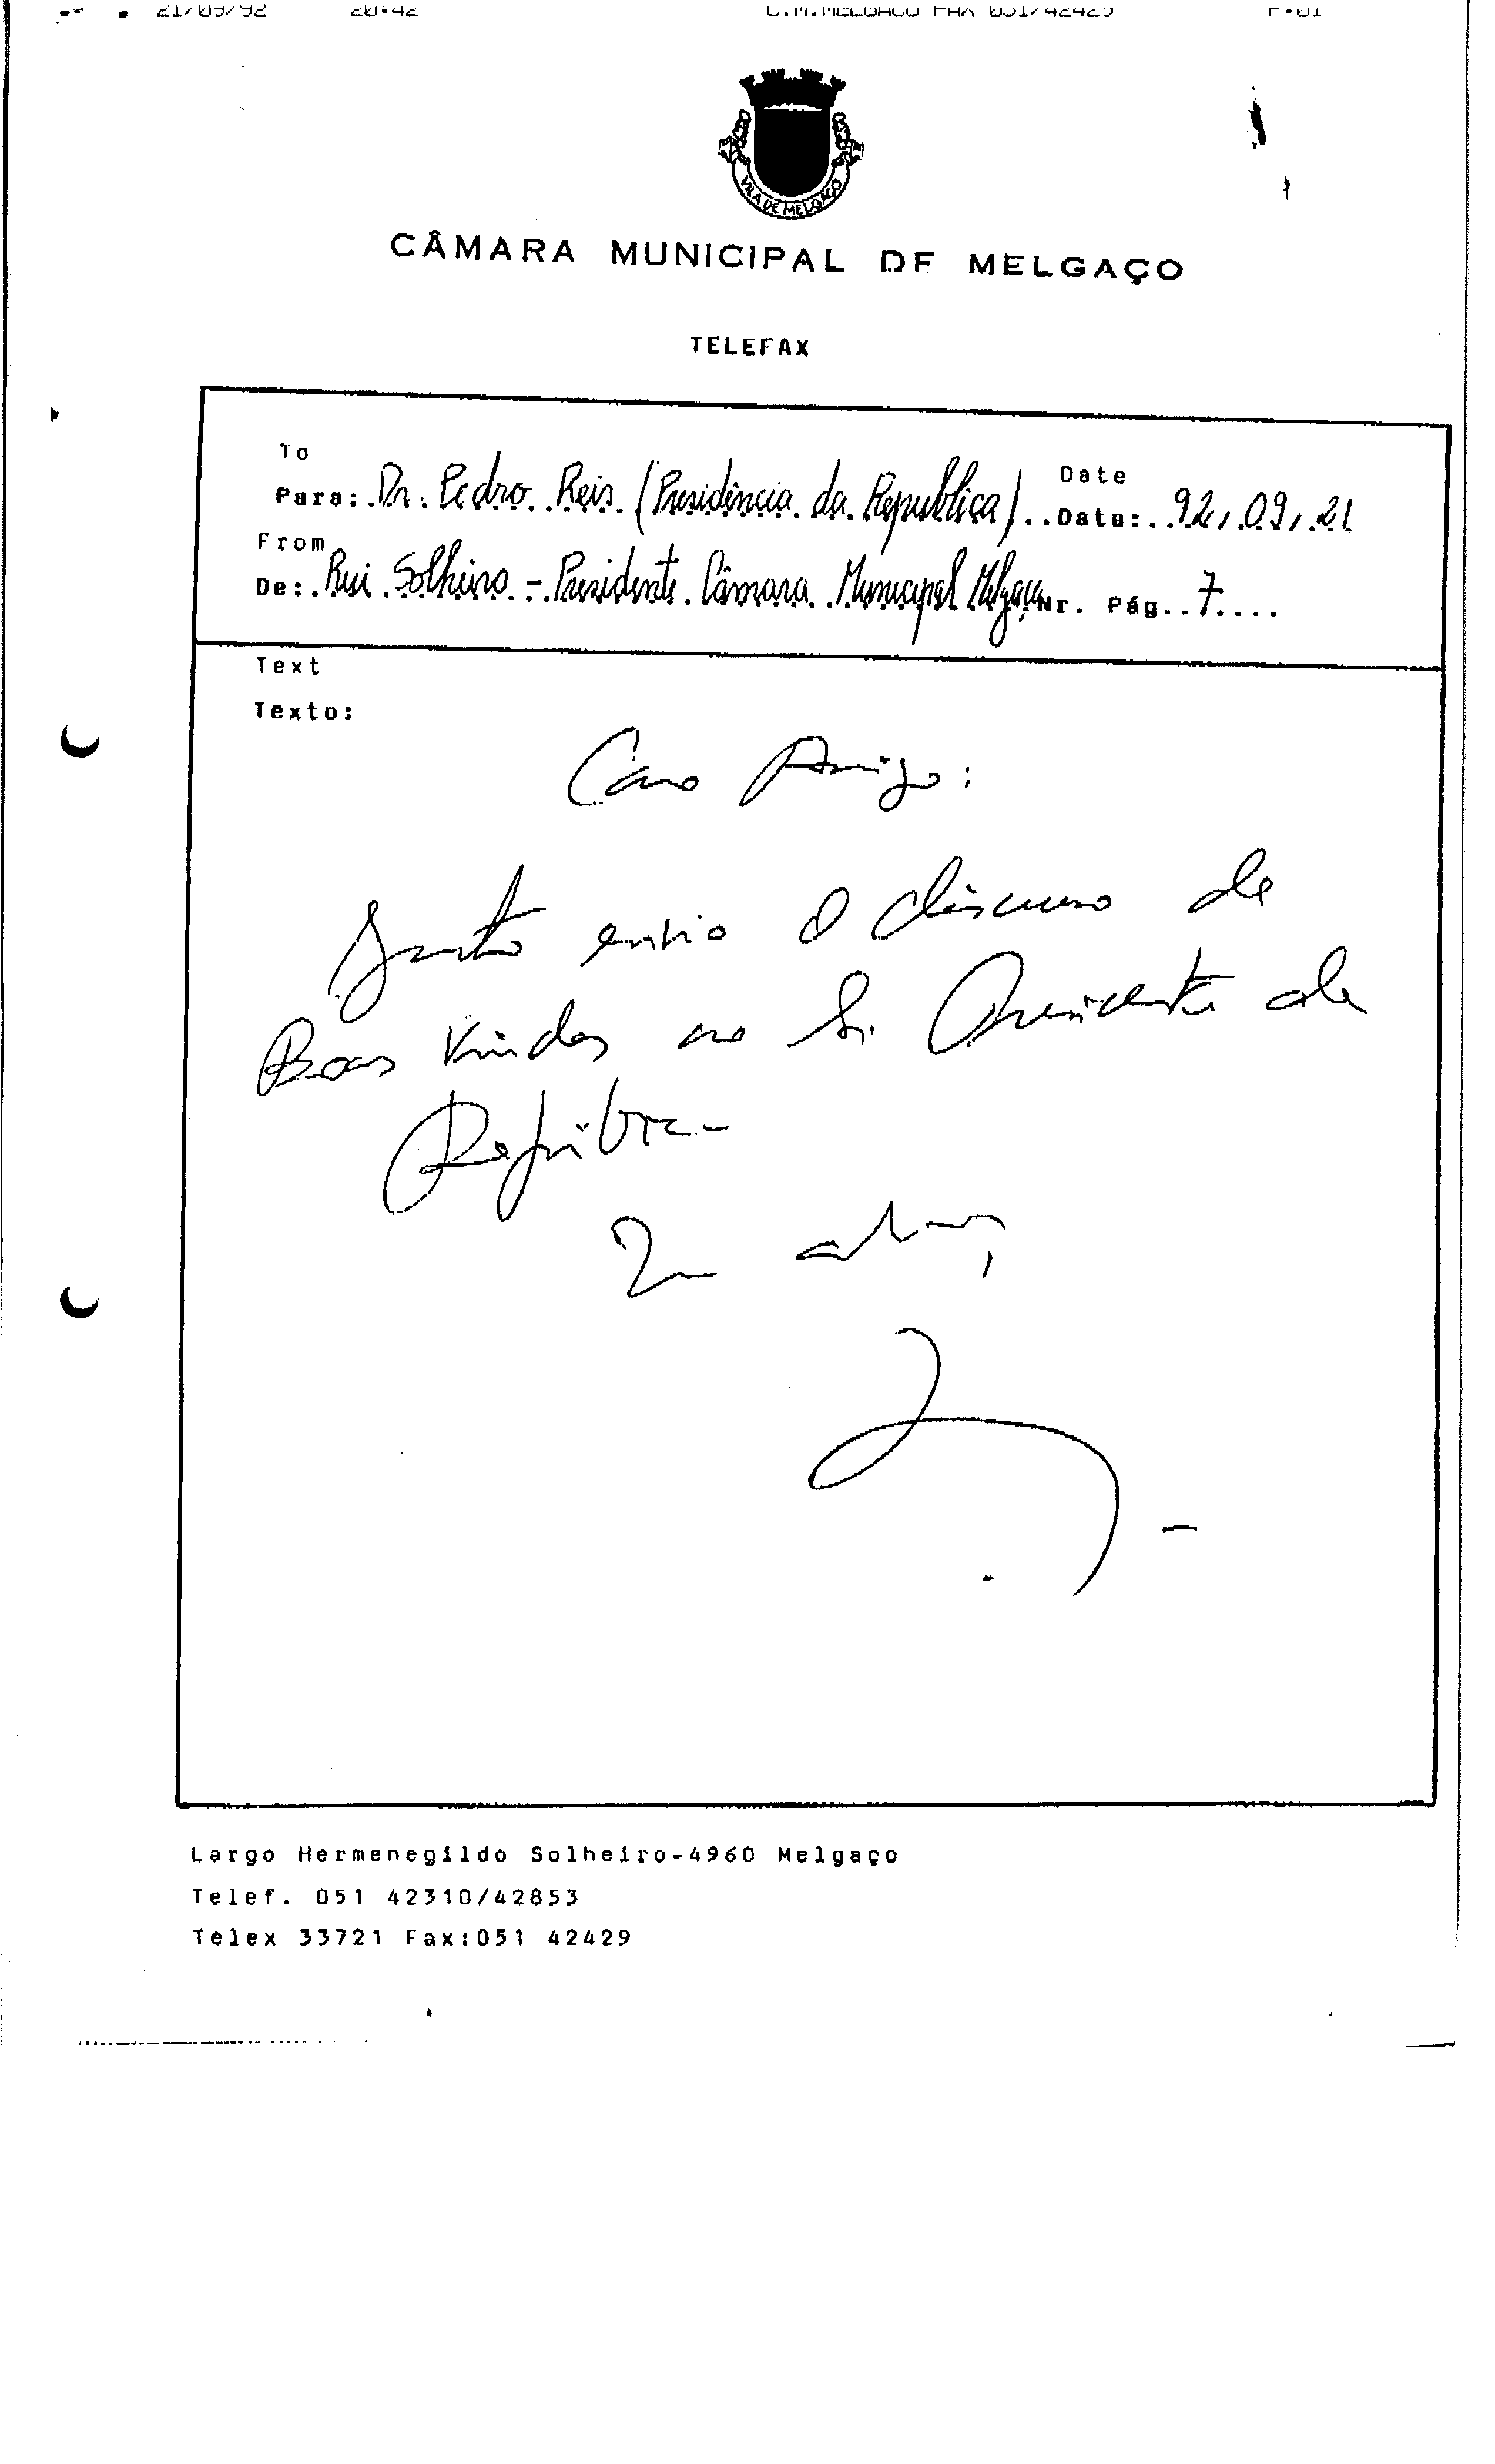 21/09/92 20:42 C.M.MELGACO FAX 051/42429 P.01
VILA DE MELGAÇO
CÂMARA MUNICIPAL DE MELGAÇO
TELEFAX
To
Para: Dr. Pedro Reis (Presidência da Republica) Date
Data: 92,09,21
From
De: Rui Solheiro - Presidente Câmara Municipal Melgaço Nr. Pág. 7
Text
Texto:
Caro Amigo:
Junto envio o discurso de
Boas Vindas ao Sr. Presidente da
República
Um abraço,
Largo Hermenegildo Solheiro-4960 Melgaço
Telef. 051 42310/42853
Telex 33721 Fax:051 42429